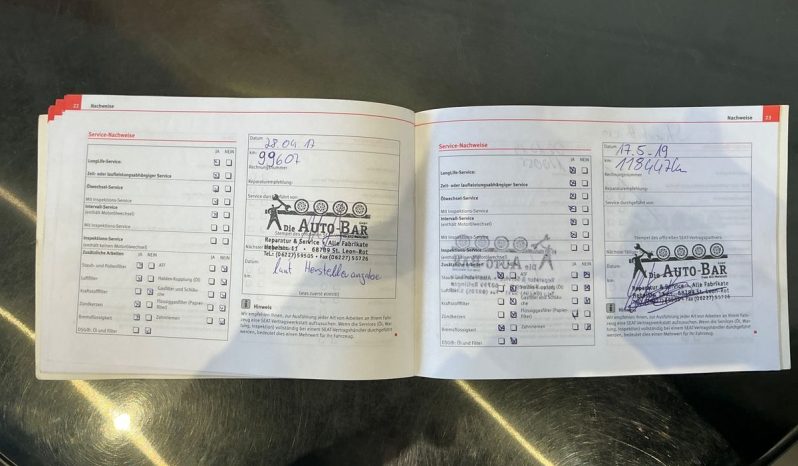 22 Nachweise
Service-Nachweise
JA NEIN
LongLife-Service:
Zeit- oder laufleistungsabhängiger Service
Ölwechsel-Service
Mit Inspektions-Service
Intervall-Service
(enthält Motorölwechsel)
Inspektions-Service
(enthält keinen Motorölwechsel)
Zusätzliche Arbeiten JA NEIN JA NEIN
Staub- und Pollenfilter ATF
Luftfilter Haldex-Kupplung (Öl)
Kraftstofffilter Gasfilter und Schläu-
che
Zündkerzen Flüssiggasfilter (Papier-
filter)
Bremsflüssigkeit Zahnriemen
DSG®: Öl und Filter
Datum 28.04 17
km: 99607
Rechnungsnummer
Reparaturempfehlung:
Service durchgeführt von:
Die AUTO-BAR
Reparatur & Service, Alle Fabrikate
68789 St. Leon-Rot
Tel.: (06227) 59505 • Fax (06227) 55726
Datum:
km: laut Herstellerangabe
(was zuerst eintritt)
Hinweis
Wir empfehlen Ihnen, zur Ausführung jeder Art von Arbeiten an Ihrem Fahr-
zeug eine SEAT-Vertragswerkstatt aufzusuchen. Wenn die Services (Öl, War-
tung, Inspektion) vollständig bei einem SEAT-Vertragshändler durchgeführt
werden, bedeutet dies einen Mehrwert für Ihr Fahrzeug.
Nachweise 23
Service-Nachweise
JA NEIN
LongLife-Service:
Zeit- oder laufleistungsabhängiger Service
Ölwechsel-Service
Mit Inspektions-Service
Intervall-Service
(enthält Motorölwechsel)
Inspektions-Service
Zusätzliche Arbeiten
Staub- und Pollenfilter
Luftfilter
Kraftstofffilter Gasfilter und Schläu-
che
Zündkerzen Flüssiggasfilter (Papier-
filter)
Bremsflüssigkeit Zahnriemen
DSG®: Öl und Filter
Datum: 17.5-19
km: 118447km
Rechnungsnummer:
Reparaturempfehlung:
Service durchgeführt von:
Stempel des offiziellen SEAT-Vertragspartners.
Die AUTO-BAR
Reparatur & Service, Alle Fabrikate
Fax (06227) 55726
Hinweis
Wir empfehlen Ihnen, zur Ausführung jeder Art von Arbeiten an Ihrem Fahr-
zeug eine SEAT-Vertragswerkstatt aufzusuchen. Wenn die Services (Öl, War-
tung, Inspektion) vollständig bei einem SEAT-Vertragshändler durchgeführt
werden, bedeutet dies einen Mehrwert für Ihr Fahrzeug.